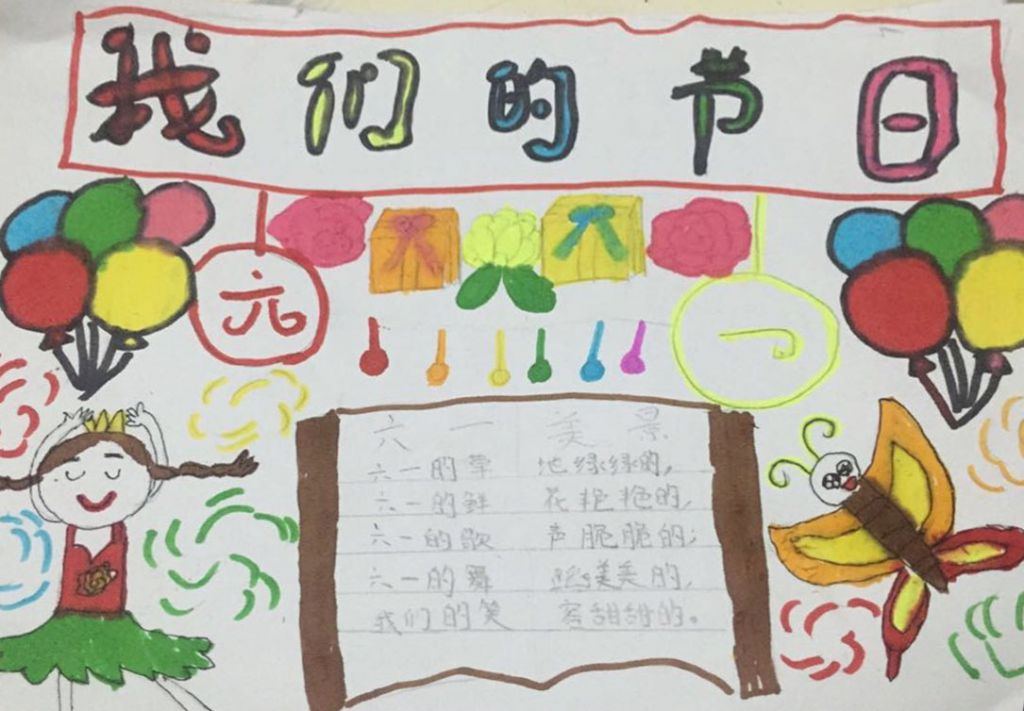 我们的节日
六
一
六一美景
六一的草地绿绿的,
六一的鲜花艳艳的,
六一的歌声脆脆的;
六一的舞 美美的,
我们的笑容甜甜的。